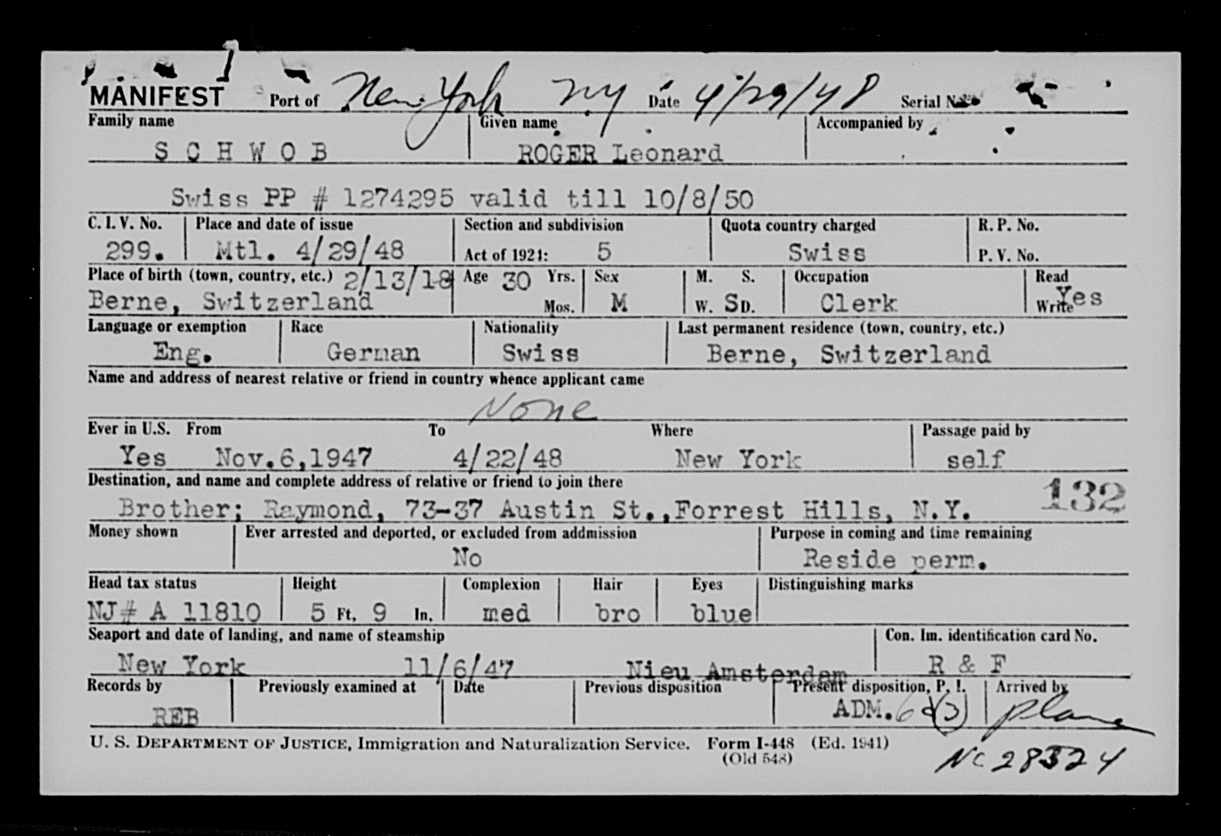 MANIFEST Port of New York NY Date 4/29/48 Serial No.
Family name Given name Accompanied by
S C H W O B ROGER Leonard
Swiss PP # 1274295 valid till 10/8/50
C. I. V. No. Place and date of issue Section and subdivision Quota country charged R. P. No.
299. Mtl. 4/29/48 Act of 1924: 5 Swiss P. V. No.
Place of birth (town, country, etc.) 2/13/18 Age 30 Yrs. Sex M. S. Occupation Read
Berne, Switzerland Mos. M W. SD. Clerk Write Yes
Language or exemption Race Nationality Last permanent residence (town, country, etc.)
Eng. German Swiss Berne, Switzerland
Name and address of nearest relative or friend in country whence applicant came
None
Ever in U.S. From To Where Passage paid by
Yes Nov.6,1947 4/22/48 New York self
Destination, and name and complete address of relative or friend to join there
Brother: Raymond, 73-37 Austin St.,Forrest Hills, N.Y. 132
Money shown Ever arrested and deported, or excluded from addmission Purpose in coming and time remaining
No Reside perm.
Head tax status Height Complexion Hair Eyes Distinguishing marks
NJ# A 11810 5 Ft. 9 In. med bro blue
Seaport and date of landing, and name of steamship Con. Im. identification card No.
New York 11/6/47 Nieu Amsterdam R & F
Records by Previously examined at Date Previous disposition Present disposition, P. I. Arrived by
REB ADM. plane
U. S. DEPARTMENT OF JUSTICE, Immigration and Naturalization Service. Form I-448 (Ed. 1941)
(Old 548) NC 28324